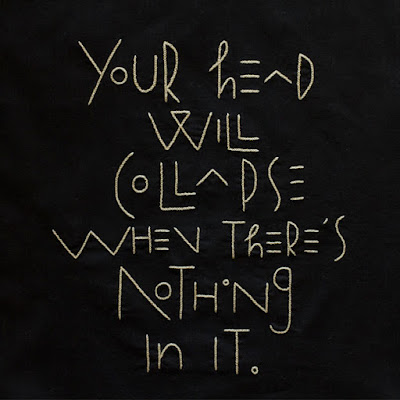 YOUR HEAD
WILL
COLLAPSE
WHEN THERE'S
NOTHING
IN IT.